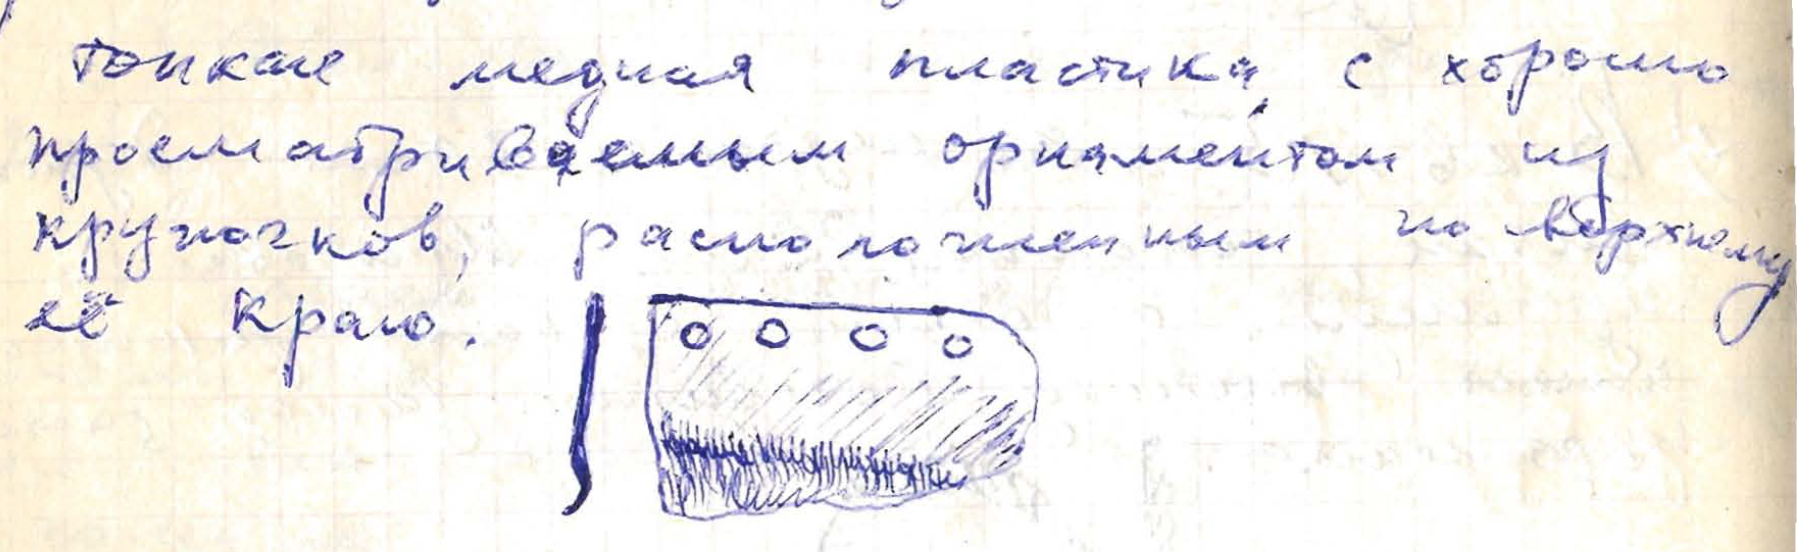 тонкая медная пластика, с хорошо
просматриваемым орнаментом из
кружочков, расположенным по верхнему
её краю.